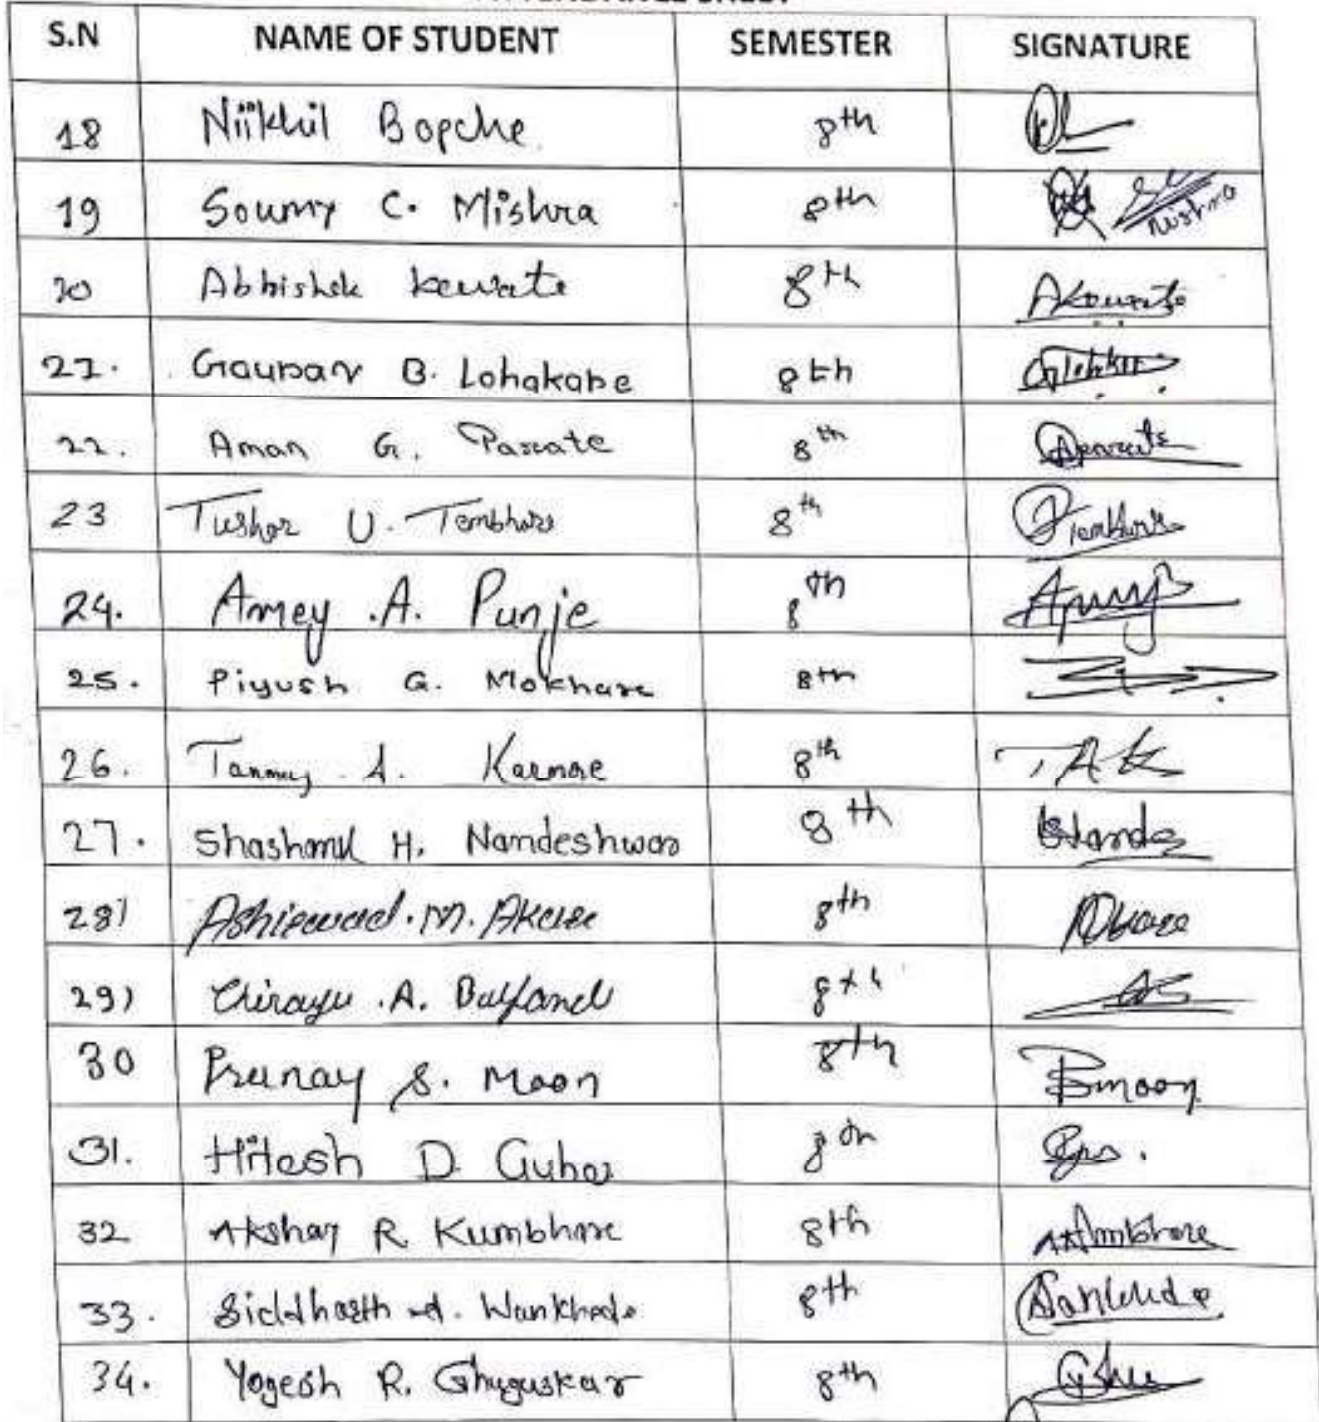 S.N NAME OF STUDENT SEMESTER SIGNATURE
18 Niikhil Bopche 8th
19 Soumy C. Mishra 8th Mishra
20 Abhishek kewate 8th Akewate
21. Gaurav B. Lohakare 8th
22. Aman G. Parate 8th
23 Tushar U. Tembhare 8th
24. Amey .A. Punje 8th
25. Piyush G. Mokhare 8th
26. Tanmay A. Karmore 8th TAK
27. Shashank H. Nandeshwar 8th
28) Ashirwad. M. Akare 8th Akare
29) Chirayu .A. 8th
30 Prunay S. Moon 8th Bmoon
31. Hitesh D. 8th
32 Akshay R. Kumbhare 8th
33. Siddharth A. Wankhede 8th
34. Yogesh R. Ghuguskar 8th